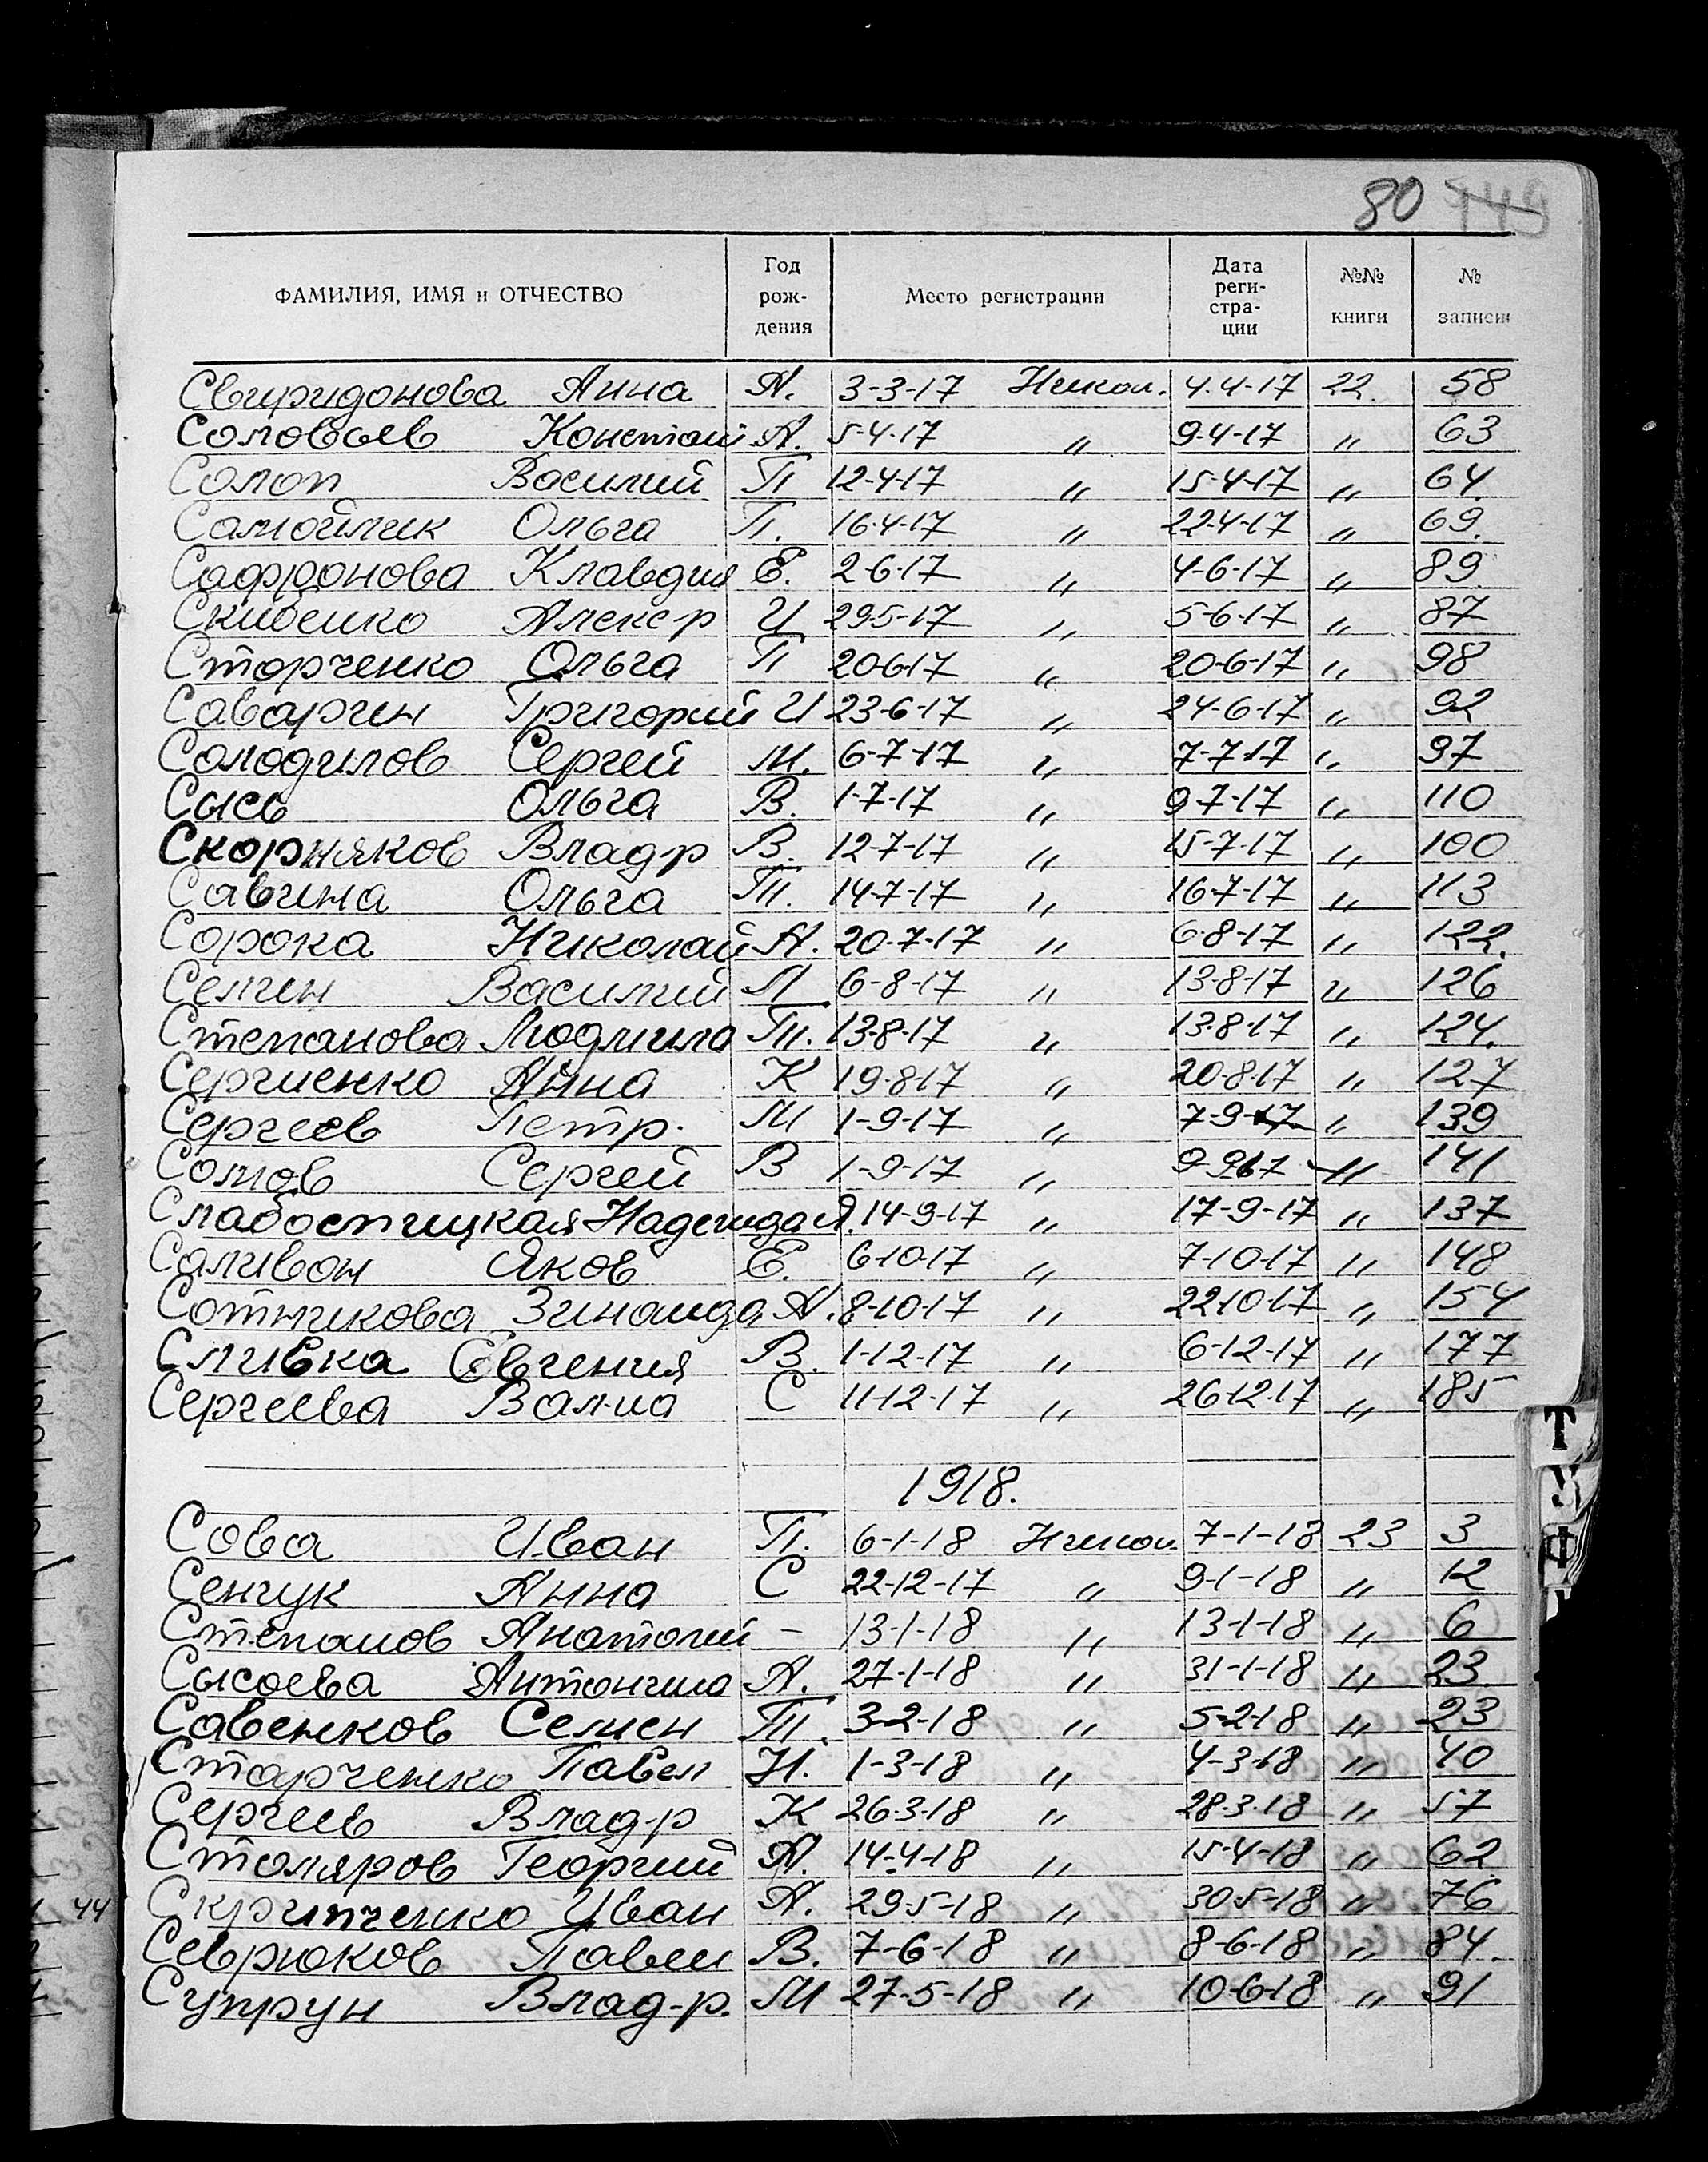 80 149
ФАМИЛИЯ, ИМЯ и ОТЧЕСТВО Год рож- дения Место регистрации Дата реги- стра- ции №№ книги № записи
Свиридонова Анна А. 3-3-17 Никол. 4.4-17 22. 58
Соловьев Констант А. 5-4-17 " 9-4-17 " 63
Солоп Василий П 12-4-17 " 15-4-17 " 64
Самойлик Ольга П. 16-4-17 " 22-4-17 " 69.
Сафронова Клавдия Е. 2-6-17 " 4-6-17 " 89
Скибенко Алекс-р И 29-5-17 " 5-6-17 " 87
Сторченко Ольга П 20-6-17 " 20-6-17 " 98
Саваргин Григорий И 23-6-17 " 24-6-17 " 92
Солодилов Сергей М. 6-7-17 " 7-7-17 " 97
Сысь Ольга В. 1-7-17 " 9-7-17 " 110
Скорняков Влад-р В. 12-7-17 " 15-7-17 " 100
Савина Ольга Т. 14-7-17 " 16-7-17 " 113
Сорока Николай А. 20-7-17 " 6-8-17 " 122.
Семин Василий Л 6-8-17 " 13-8-17 " 126
Степанова Людмила Т. 13-8-17 " 13-8-17 " 124.
Сергиенко Анна К 19-8-17 " 20-8-17 " 127
Сергеев Петр. М 1-9-17 " 7-9-17 " 139
Сомов Сергей В 1-9-17 " 9-9-17 " 141
Слабоспицкая Надежда Я. 14-9-17 " 17-9-17 " 137
Саливон Яков Е. 6-10-17 " 7-10-17 " 148
Сотникова Зинаида А. 8-10-17 " 22-10-17 " 154
Сливка Евгения В. 1-12-17 " 6-12-17 " 177
Сергеева Вал-на С 11-12-17 " 26-12-17 " 185
1918.
Сова Иван П. 6-1-18 Никол. 7-1-18 23 3
Сенчук Анна С 22-12-17 " 9-1-18 " 12
Степанов Анатолий - 13-1-18 " 13-1-18 " 6
Сысоева Антонина А. 27-1-18 " 31-1-18 " 23
Савенков Семен Т. 3-2-18 " 5-2-18 " 23
Старченко Павел И. 1-3-18 " 4-3-18 " 40
Сергеев Влад-р К 26-3-18 " 28-3-18 " 57
Столяров Георгий А. 14-4-18 " 15-4-18 " 62
Скрипченко Иван А. 29-5-18 " 30-5-18 " 76
Севрюков Павел В. 7-6-18 " 8-6-18 " 84.
Супрун Влад-р. М 27-5-18 " 10-6-18 " 91
Т
У
Ф
44